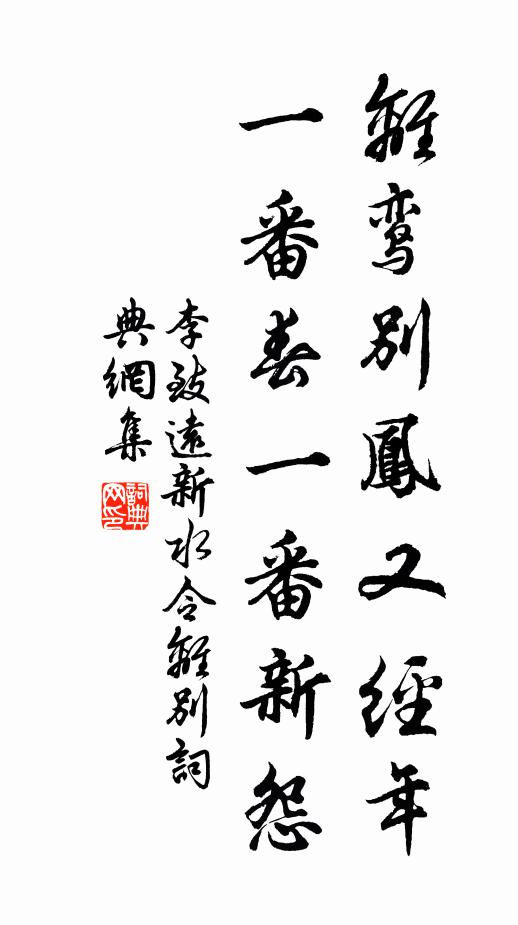 離鸾別鳳又經年
一番春一番新怨
李致遠新水令離別詞
典網集
詞典网印